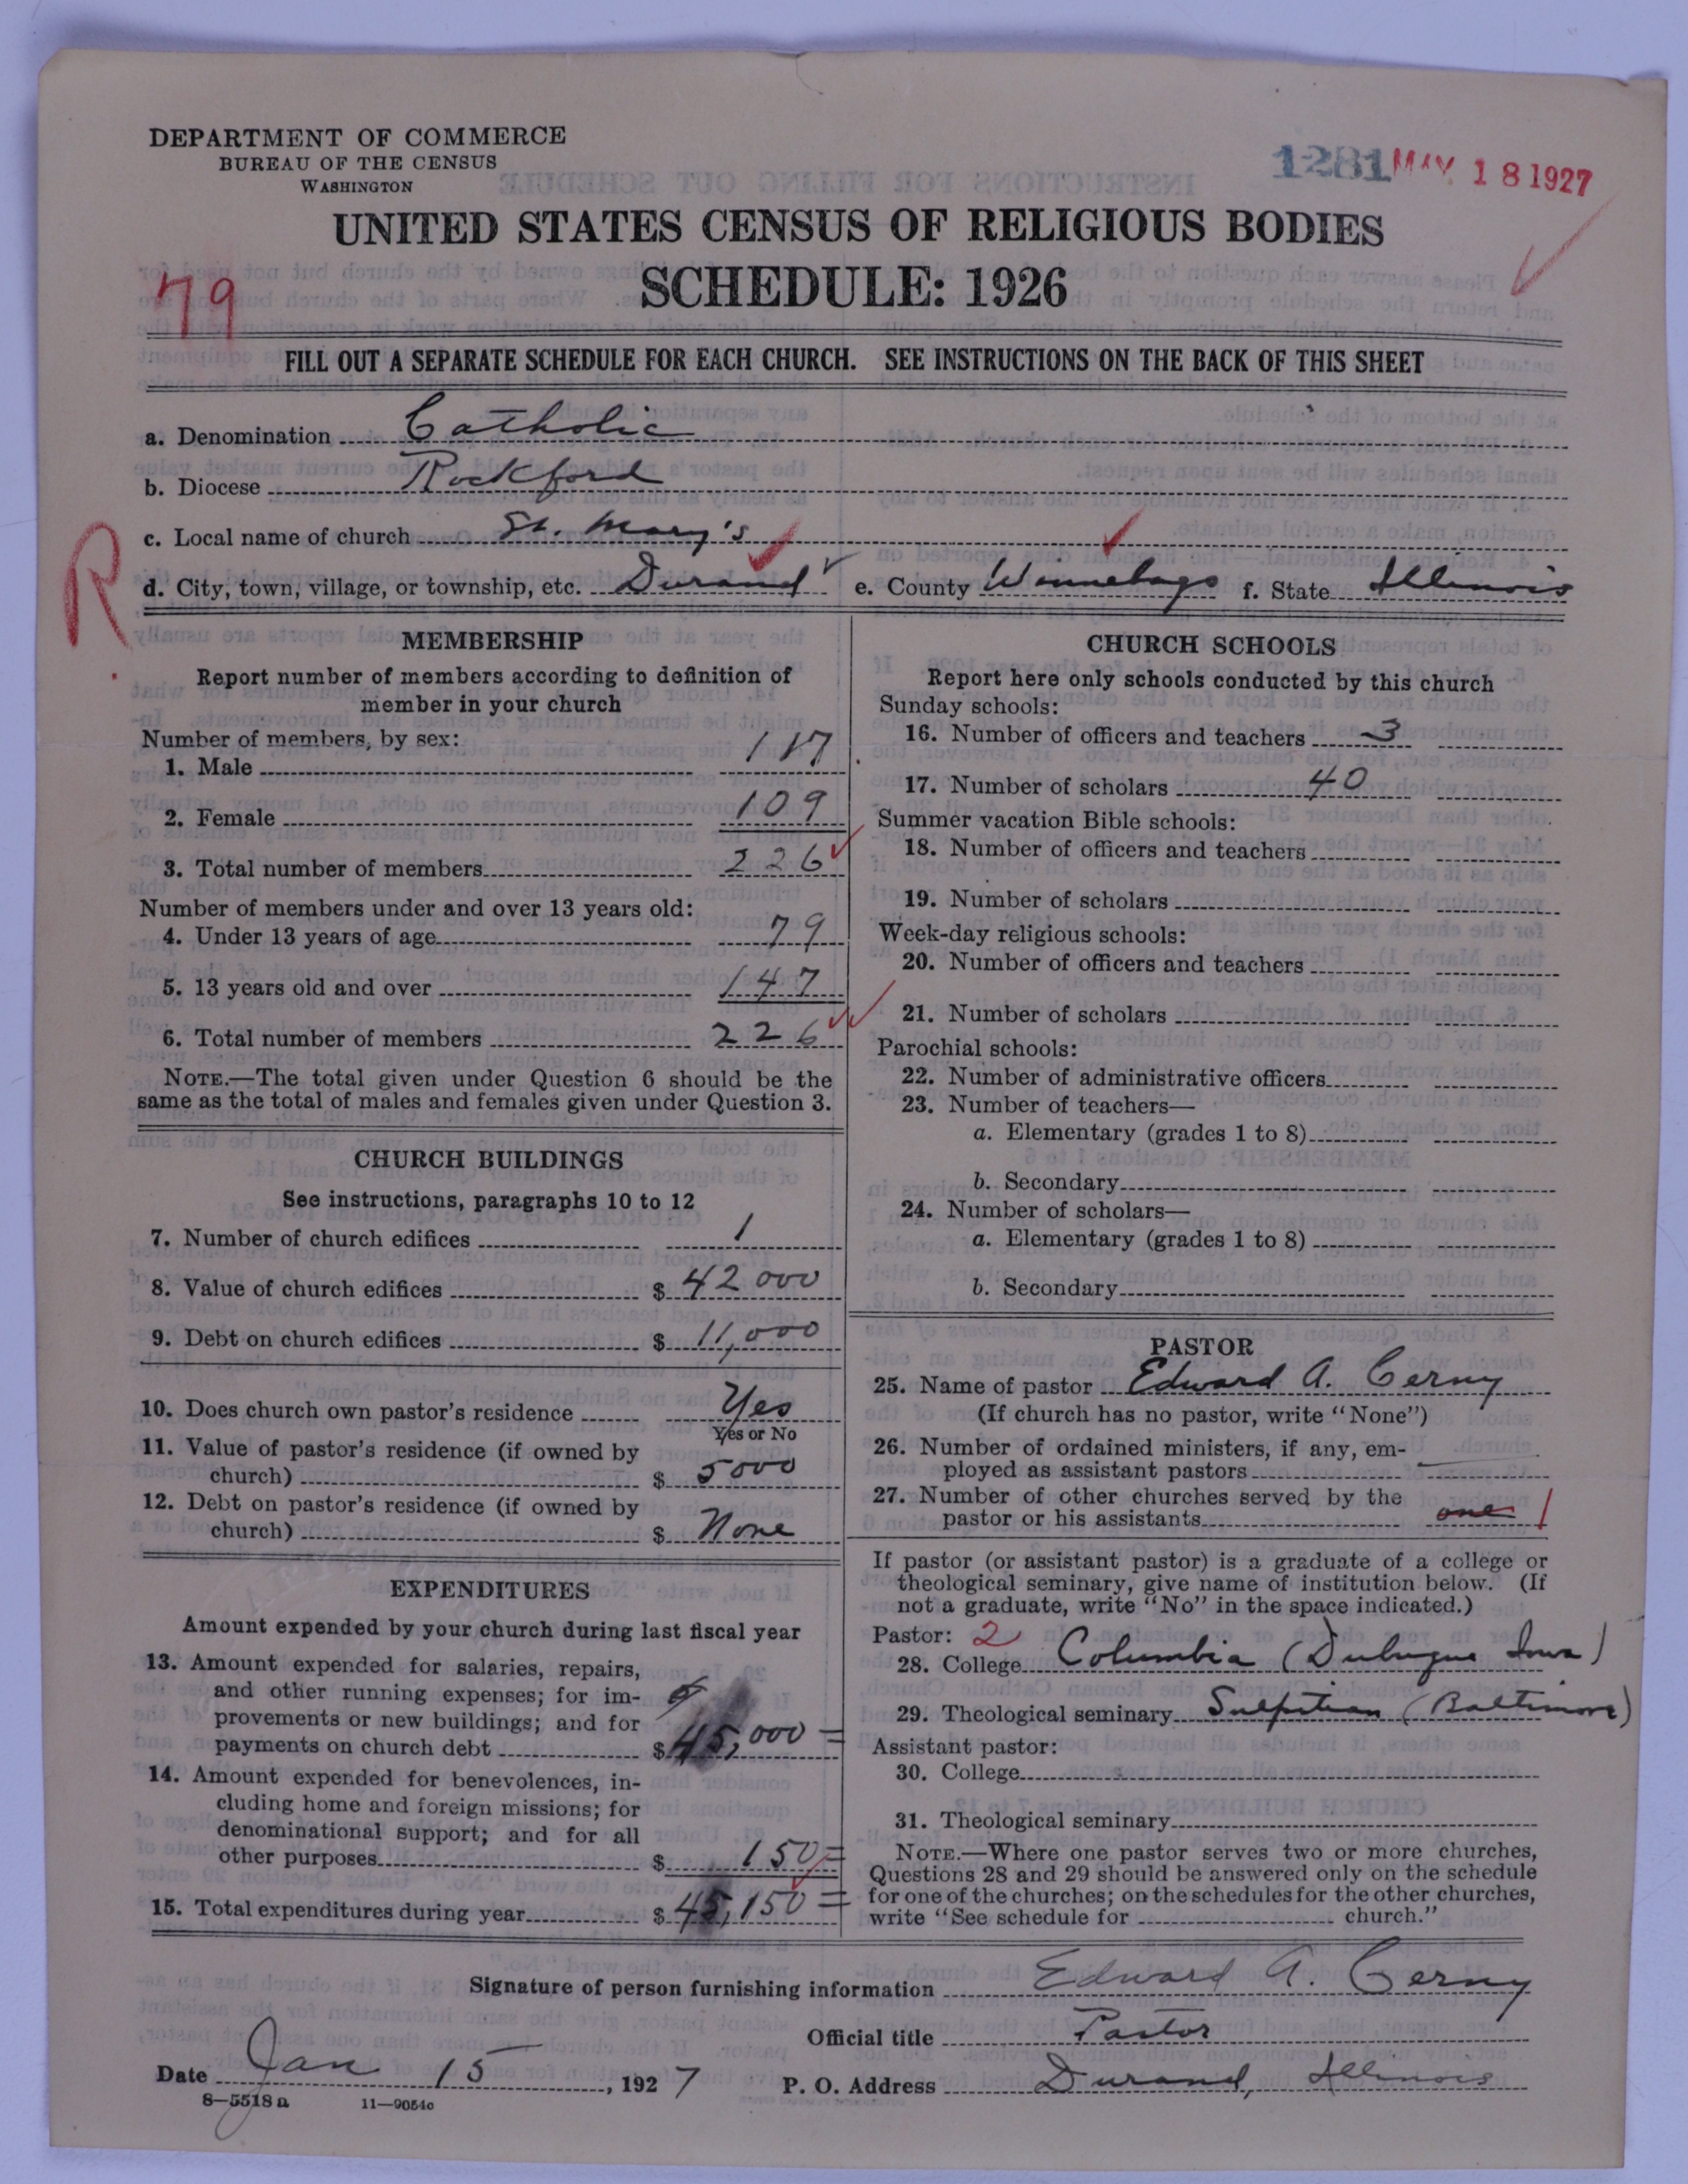 DEPARTMENT OF COMMERCE
BUREAU OF THE CENSUS
WASHINGTON
1281 MAY 18 1927
UNITED STATES CENSUS OF RELIGIOUS BODIES
SCHEDULE: 1926
79
FILL OUT A SEPARATE SCHEDULE FOR EACH CHURCH. SEE INSTRUCTIONS ON THE BACK OF THIS SHEET
a. Denomination Catholic
b. Diocese Rockford
c. Local name of church St. Mary's
R
d. City, town, village, or township, etc. Durand e. County Winnebago f. State Illinois
MEMBERSHIP
Report number of members according to definition of
member in your church
Number of members, by sex:
1. Male 117
2. Female 109
3. Total number of members 226
Number of members under and over 13 years old:
4. Under 13 years of age 79
5. 13 years old and over 147
6. Total number of members 226
NOTE.—The total given under Question 6 should be the
same as the total of males and females given under Question 3.
CHURCH BUILDINGS
See instructions, paragraphs 10 to 12
7. Number of church edifices 1
8. Value of church edifices $ 42 000
9. Debt on church edifices $ 11,000
10. Does church own pastor's residence Yes
Yes or No
11. Value of pastor's residence (if owned by
church) $ 5000
12. Debt on pastor's residence (if owned by
church) $ None
EXPENDITURES
Amount expended by your church during last fiscal year
13. Amount expended for salaries, repairs,
and other running expenses; for im-
provements or new buildings; and for
payments on church debt $ 45,000 =
14. Amount expended for benevolences, in-
cluding home and foreign missions; for
denominational support; and for all
other purposes $ 150 =
15. Total expenditures during year $ 45,150 =
CHURCH SCHOOLS
Report here only schools conducted by this church
Sunday schools:
16. Number of officers and teachers 3
17. Number of scholars 40
Summer vacation Bible schools:
18. Number of officers and teachers
19. Number of scholars
Week-day religious schools:
20. Number of officers and teachers
21. Number of scholars
Parochial schools:
22. Number of administrative officers
23. Number of teachers—
a. Elementary (grades 1 to 8)
b. Secondary
24. Number of scholars—
a. Elementary (grades 1 to 8)
b. Secondary
PASTOR
25. Name of pastor Edward A. Cerny
(If church has no pastor, write "None")
26. Number of ordained ministers, if any, em-
ployed as assistant pastors
27. Number of other churches served by the
pastor or his assistants one 1
If pastor (or assistant pastor) is a graduate of a college or
theological seminary, give name of institution below. (If
not a graduate, write "No" in the space indicated.)
Pastor: 2
28. College Columbia (Dubuque Iowa)
29. Theological seminary Sulpitian (Baltimore)
Assistant pastor:
30. College
31. Theological seminary
NOTE.—Where one pastor serves two or more churches,
Questions 28 and 29 should be answered only on the schedule
for one of the churches; on the schedules for the other churches,
write "See schedule for church."
Signature of person furnishing information Edward A. Cerny
Official title Pastor
Date Jan 15, 1927 P. O. Address Durand, Illinois
8—5518 a 11—9054c